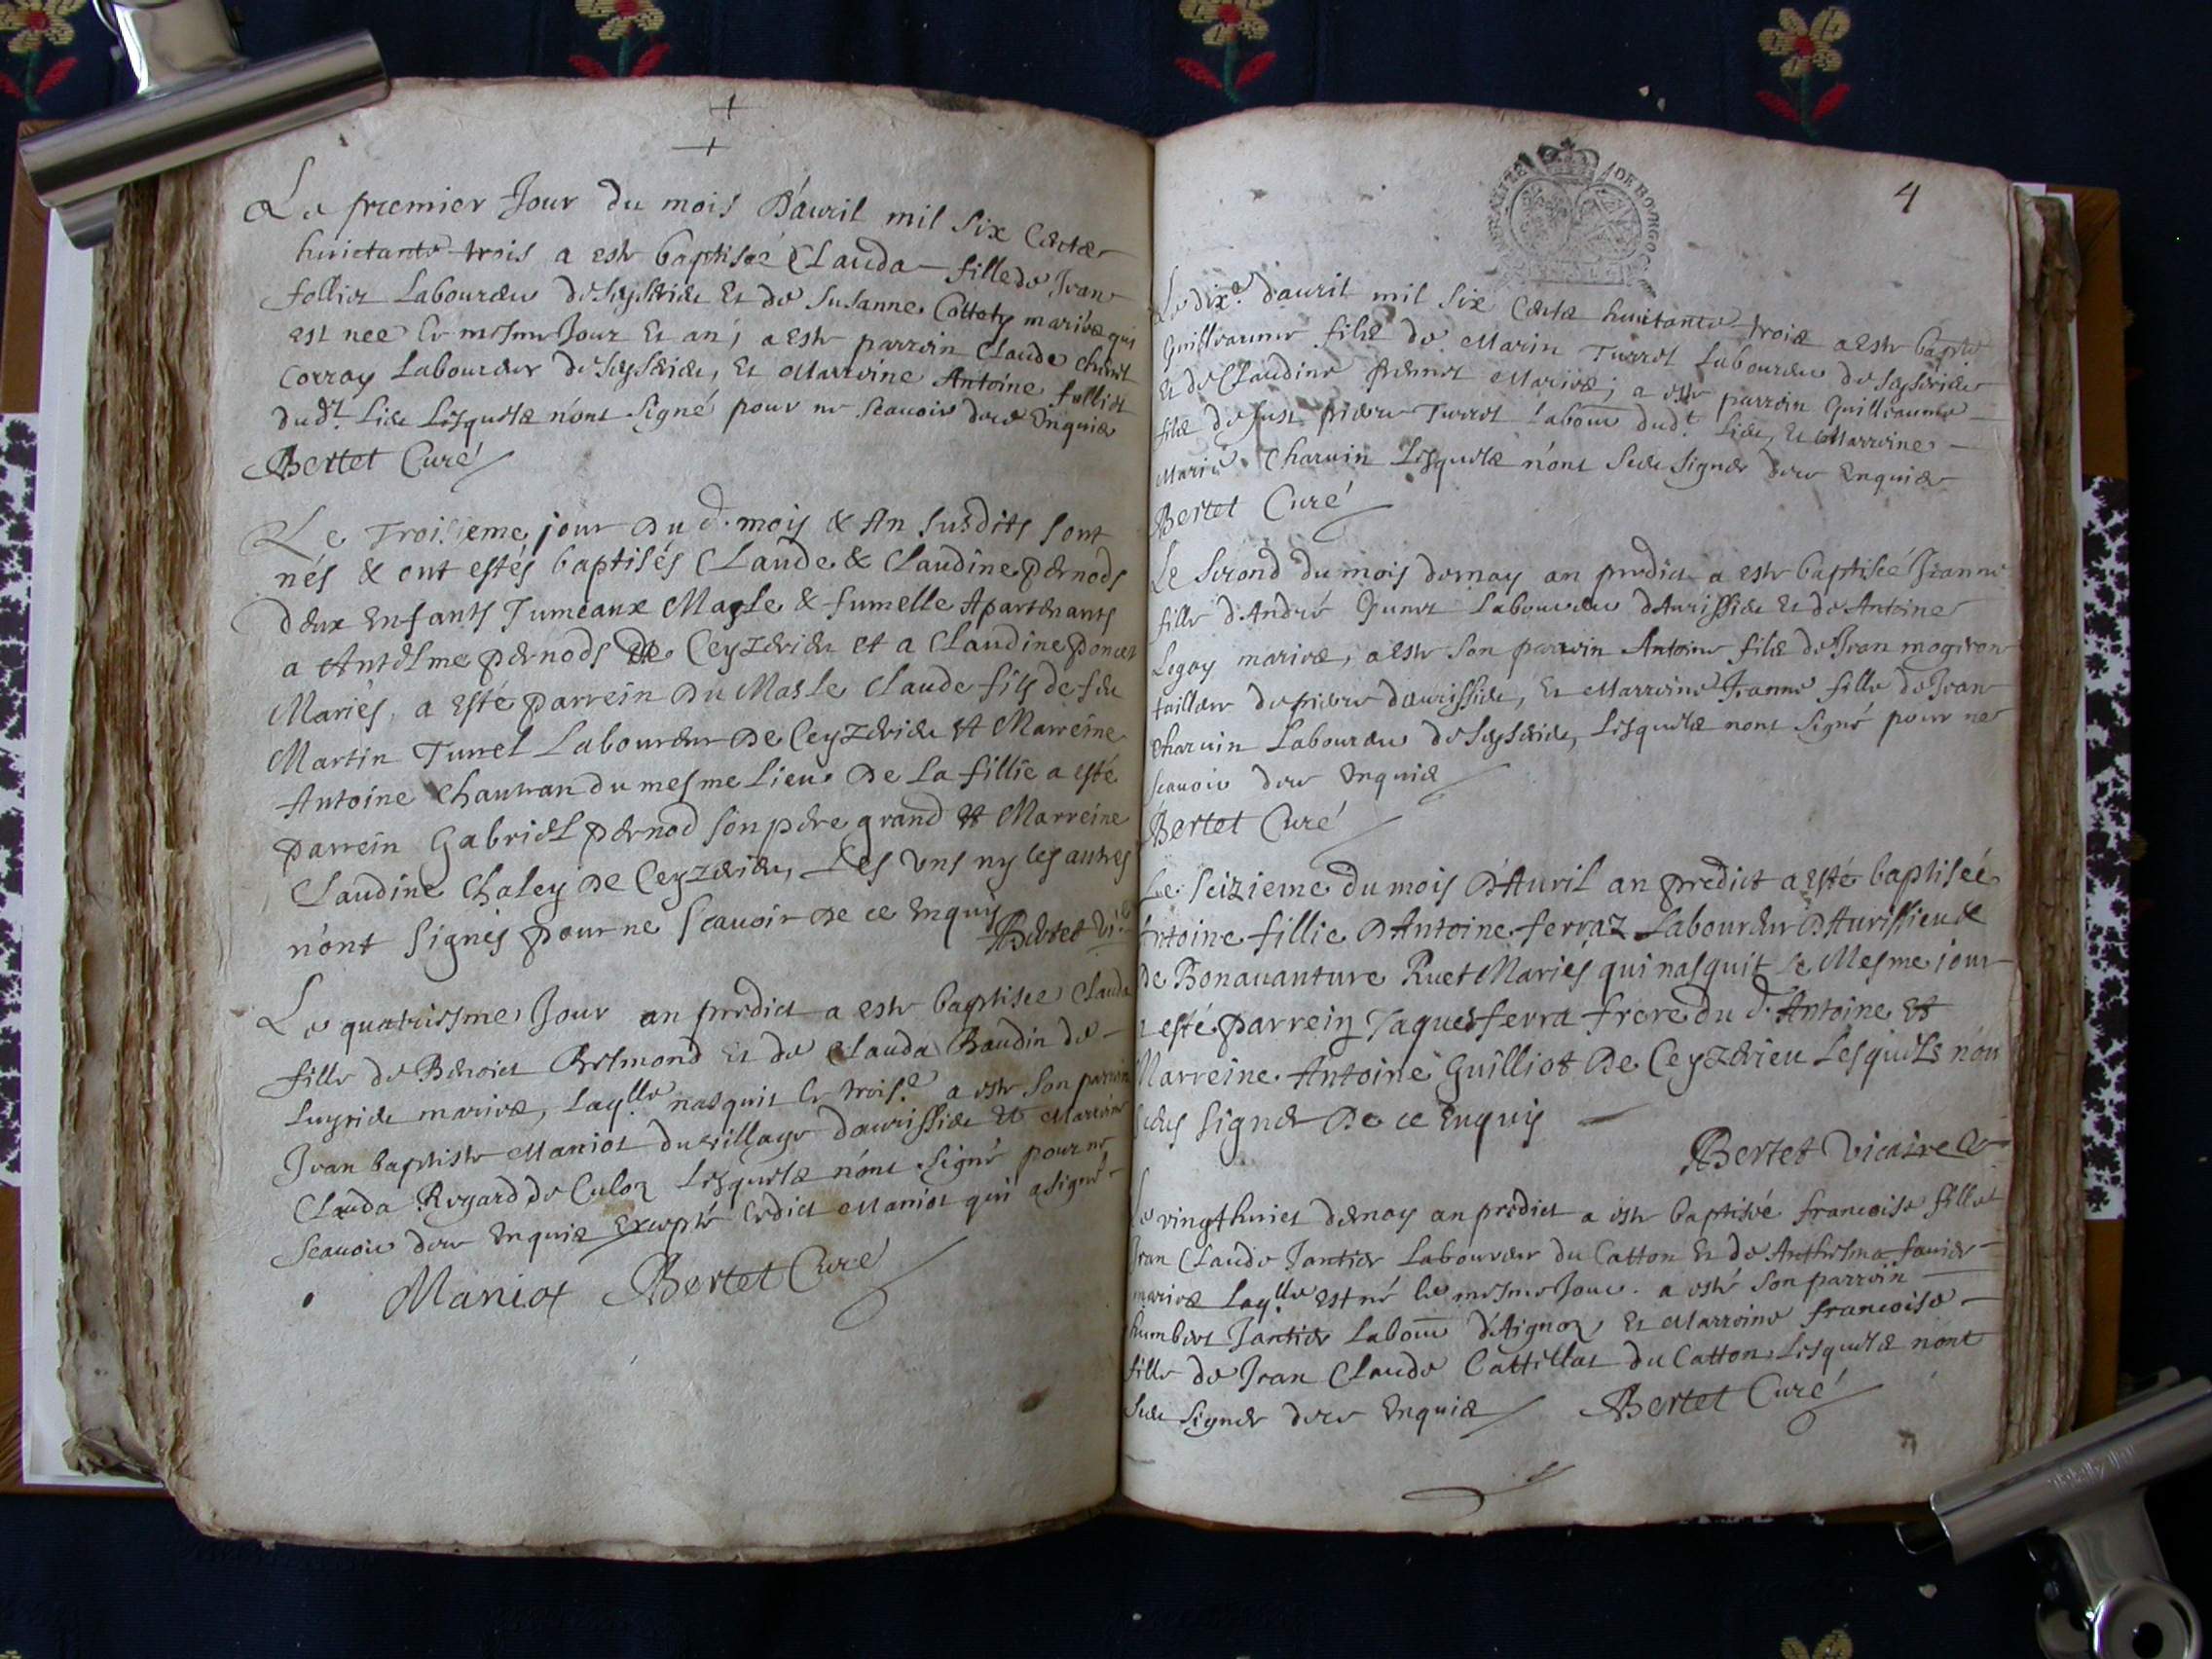 Le premier Jour du mois D'auril mil six Cents
huictante trois a este baptisée Clauda fille de Jean
follier Laboureur de Seyserieu Et de Susanne mariés qui
est nee le mesme Jour Et an, a este parrein Claude
Corray Laboureur de Seyserieu, Et Marreine Antoine follier
dudt. Lieu Lesquels n'ont signé pour ne scauoir de ce Enquis
Bertet Curé
Le Troisieme jour Du d. mois & An susdits sont
nés & ont estés baptisés Claude & Claudine pernods
deux Enfants Jumeaux Masle & fumelle Apartenants
a Antelme pernods De Ceyzerieu et a Claudine poncet
Mariés, a esté parrein Du Masle Claude fils de feu
Martin Turrel Laboureur De Ceyzerieu et Marreine
Antoine Chautran du mesme Lieu De La fillie a esté
parrein Gabriel pernod son pere grand et Marreine
Claudine Chaley De Ceyzerieu, Les Uns ny les autres
n'ont signés pour ne scauoir De ce Enquis
Bertet Vi.
Le quatriesme Jour an predict a este baptisee Clauda
fille de Benoict Bermond Et de Clauda Baudin de
Luyrieu mariés, Laqlle. nasquit le trois.e a este son parrein
Jean baptiste Maniot du village d'aurissieu et Marreine
Clauda Reyard de Culoz Lesquels n'ont signé pour ne
scauoir de ce Enquis Excepté ledict Maniot qui a signé
Maniot Bertet Curé
4
DE BOVRGO
Le dixe. d'auril mil six Cents huictante trois a este bapte
Guilleaume fils de Marin Turrel Laboureur de Seyserieu
Et de Claudine pernet Mariés; a este parrein Guilleaume
fils de fust pierre Turrel Labour dudt. Lieu, Et Marreine
Marie Charuin Lesquels n'ont sceu signer de ce Enquis
Bertet Curé
Le second du mois de may an predict a este baptisée Jeanne
fille d'André Laboureur d'Aurissieu Et de Antoine
Legay mariés, a este son parrein Antoine fils de Jean mogeron
tailleur de pierre d'aurissieu, Et Marreine Jeanne fille de Jean
Charuin Laboureur de Seyserieu, Lesquels nont signé pour ne
scauoir de ce Enquis
Bertet Curé
Le seizieme du mois D'Auril an predict a esté baptiseé
Antoine fillie D'Antoine ferraz Laboureur D'Aurissieu &
De Bonauanture Ruet Mariés qui nasquit le Mesme jour
a esté parrein Jaques ferra frere du d. Antoine et
Marreine Antoine Guilliot De Ceyzerieu Lesquels non
sceus signer De ce Enquis
Bertet Vicaire
Le vingthuict de may an predict a este baptisée francoise fille d
Jean Claude Jantier Laboureur du Catton Et de Anthelma fauier
mariés Laqlle. est né le mesme Jour. a esté son parrein
humbert Jantier Labour d'Aignoz Et Marreine francoise
fille de Jean Claude Cattillat du Catton Lesquels nont
sceu signer de ce Enquis Bertet Curé